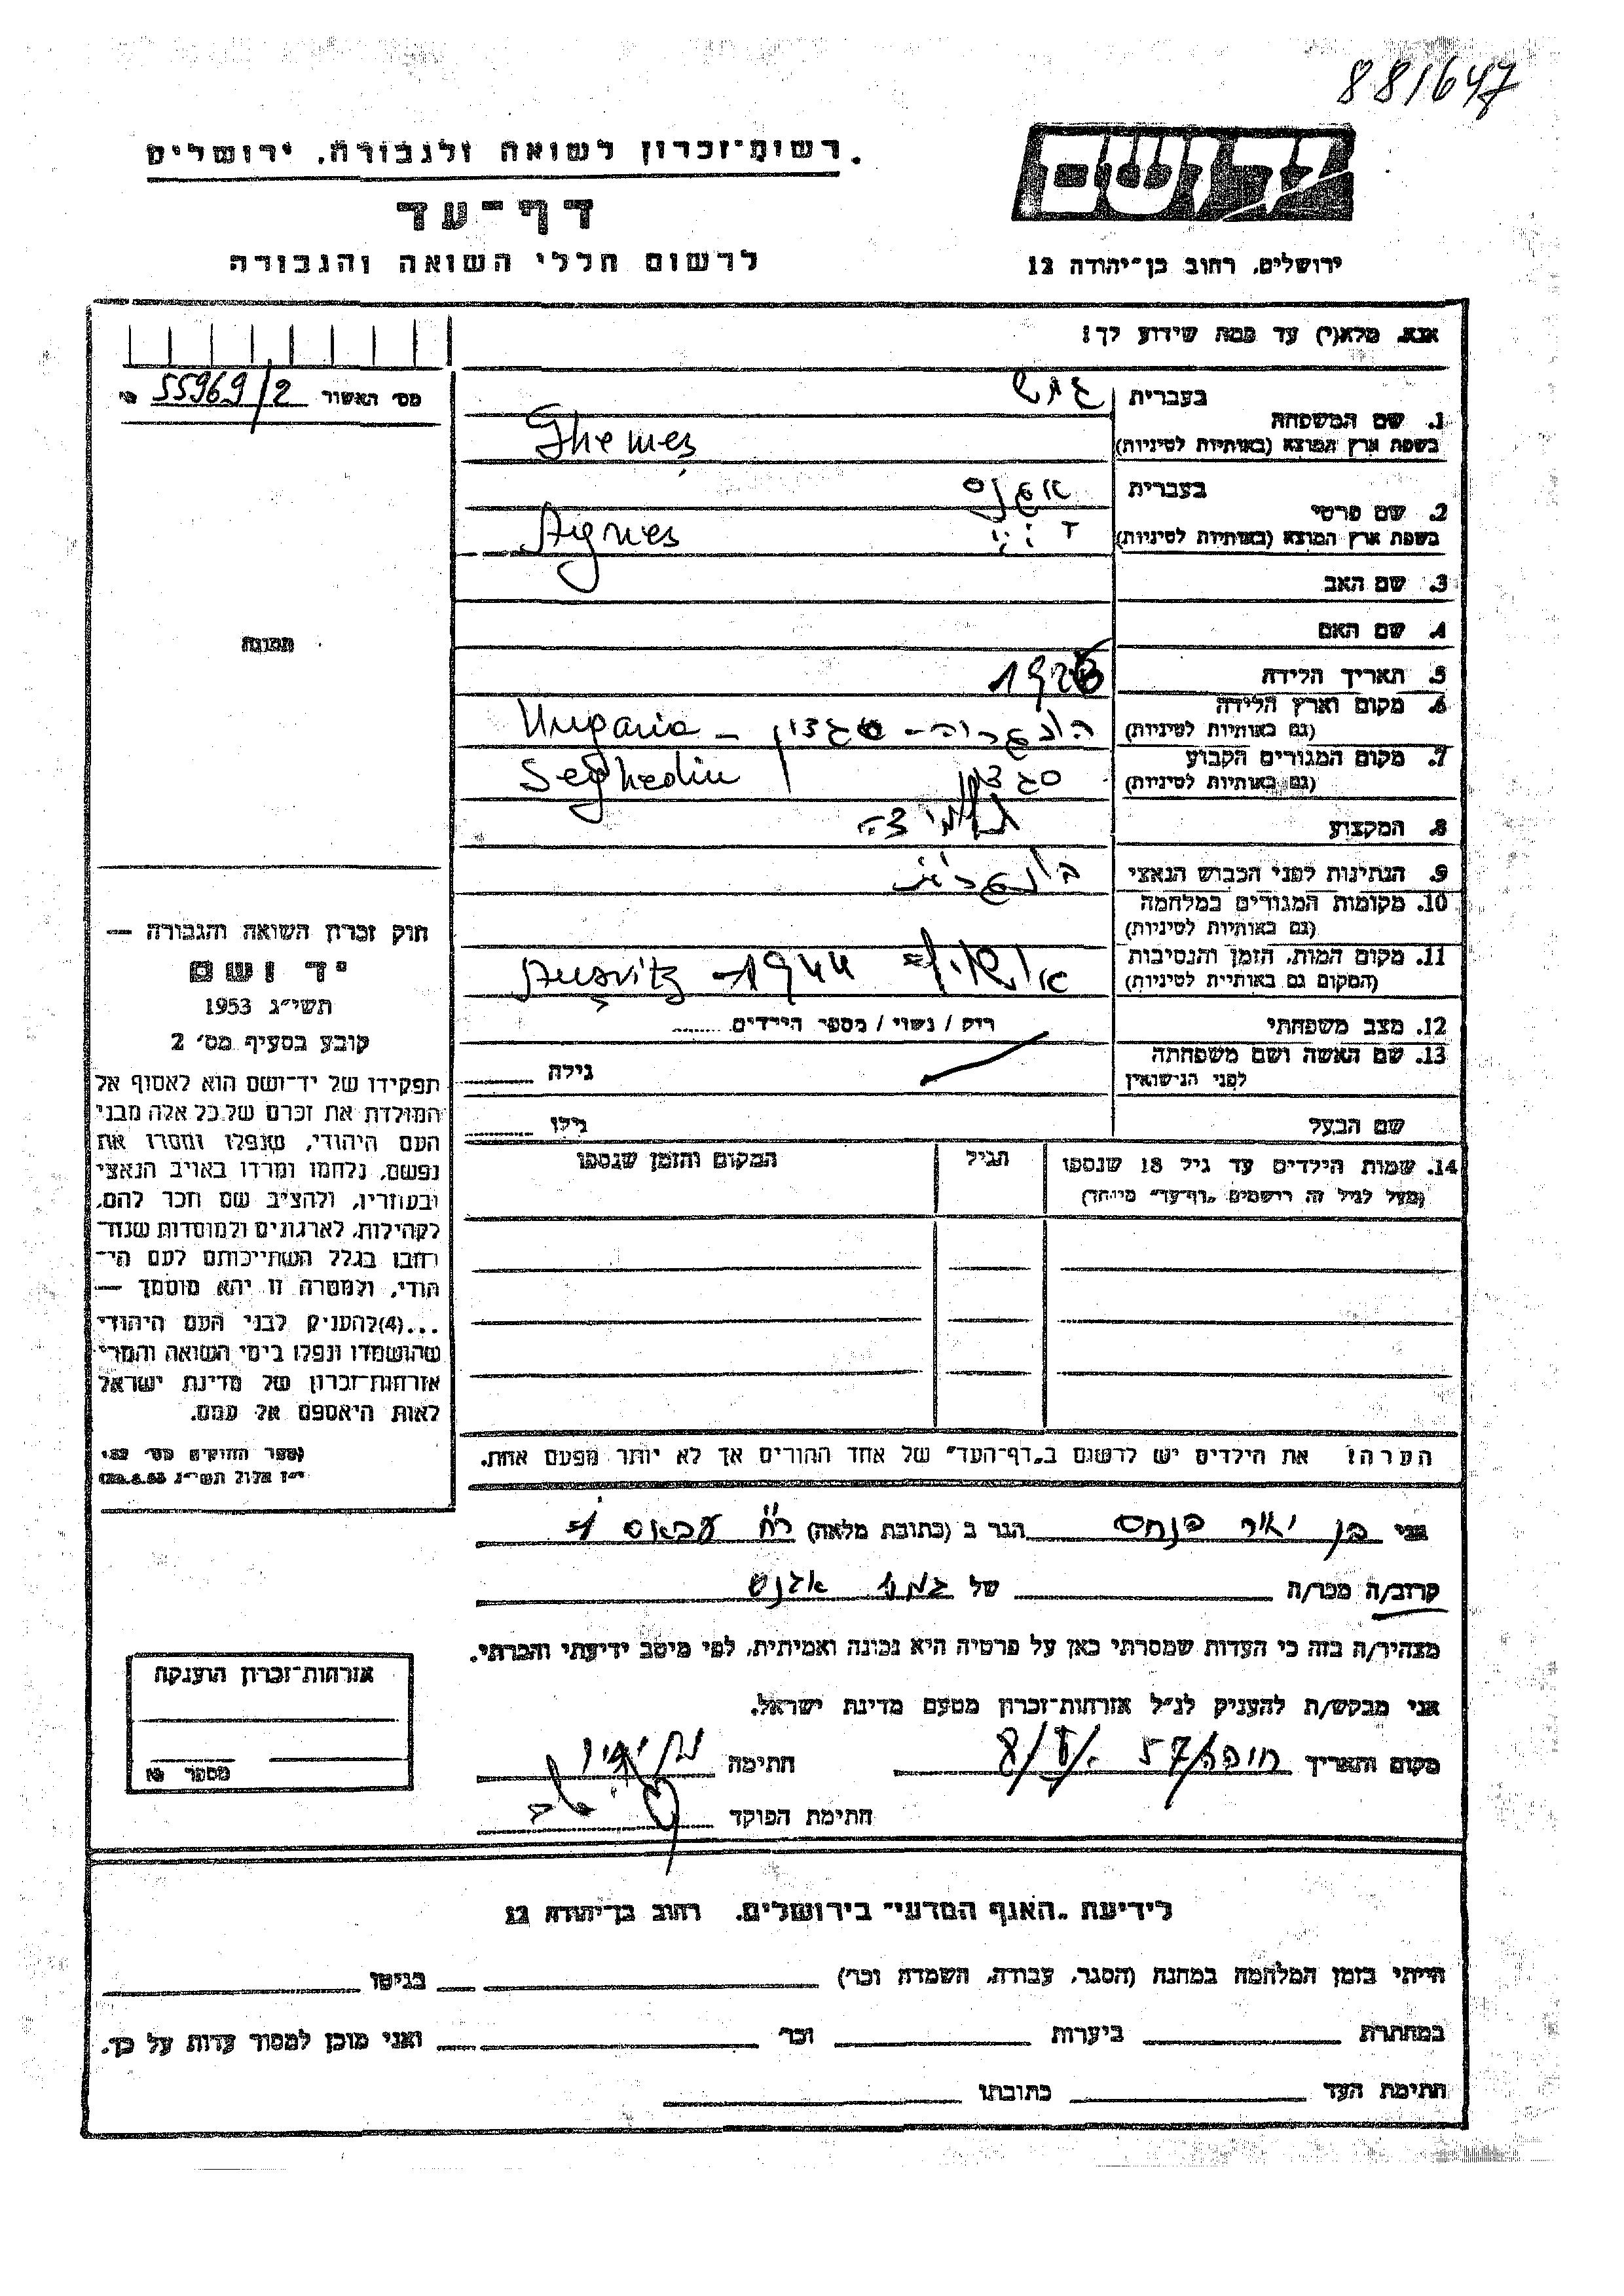 881647
רשות־זכרון לשואה ולגבורה. ירושלים
דף־עד
לרשום חללי השואה והגבורה
ידושם
ירושלים, רחוב בן־יהודה 12
אנא, מלא(י) עד כמה שידוע לך!
מס׳ האשור 55969/2
בעברית
1. שם המשפחה
בשפת ארץ המוצא (באותיות לטיניות) Ghemeș
בעברית אגנס
2. שם פרטי
בשפת ארץ המוצא (באותיות לטיניות) Agnes
3. שם האב
4. שם האם
תמונה
5. תאריך הלידה
6. מקום וארץ הלידה
(גם באותיות לטיניות) הונגריה - סגדין - Ungaria
7. מקום המגורים הקבוע
(גם באותיות לטיניות) סגדין Seghedin
8. המקצוע תלמידה
9. הנתינות לפני הכבוש הנאצי הונגרית
10. מקומות המגורים במלחמה
(גם באותיות לטיניות)
11. מקום המות, הזמן והנסיבות
(המקום גם באותיות לטיניות) אושויץ 1944 - Aușvitz
12. מצב משפחתי רווק / נשוי / מספר הילדים
13. שם האשה ושם משפחתה
לפני הנישואין
גילה
שם הבעל גילו
14. שמות הילדים עד גיל 18 שנספו
(מעל לגיל זה רושמים „דף־עד״ מיוחד)
הגיל
המקום והזמן שנספו
חוק זכרון השואה והגבורה —
יד ושם
תשי״ג 1953
קובע בסעיף מס׳ 2
תפקידו של יד־ושם הוא לאסוף אל
המולדת את זכרם של כל אלה מבני
העם היהודי, שנפלו ומסרו את
נפשם, נלחמו ומרדו באויב הנאצי
ובעוזריו, ולהציב שם וזכר להם,
לקהילות, לארגונים ולמוסדות שנח־
רבו בגלל השתייכותם לעם הי־
הודי, ולמטרה זו יהא מוסמך —
...(4) להעניק לבני העם היהודי
שהושמדו ונפלו בימי השואה והמרי
אזרחות־זכרון של מדינת ישראל
לאות היאספם אל עמם.
(ספר החוקים מס׳ 132,
י״ז אלול תשי״ג 28.8.53)
הערה: את הילדים יש לרשום ב„דף־העד״ של אחד ההורים אך לא יותר מפעם אחת.
אני בן יאיר פנחס הגר ב (כתובת מלאה) רח׳ עבאס
קרוב/ה מכר/ה של אגנס
מצהיר/ה בזה כי העדות שמסרתי כאן על פרטיה היא נכונה ואמיתית, לפי מיטב ידיעתי והכרתי.
אני מבקש/ת להעניק לנ״ל אזרחות־זכרון מטעם מדינת ישראל.
מקום ותאריך חיפה חתימה
חתימת הפוקד
אזרחות־זכרון הוענקה
מספר
לידיעת „האגף המדעי״ בירושלים, רחוב בן־יהודה 12
הייתי בזמן המלחמה במחנה (הסגר, עבודה, השמדה וכו׳) בגיטו
במחתרת ביערות וכו׳ ואני מוכן למסור עדות על כך.
חתימת העד כתובתו